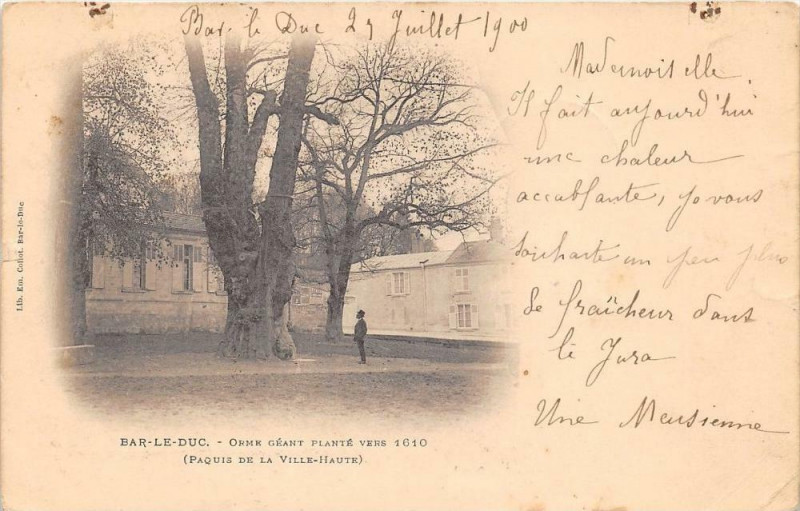 Bar le Duc 25 Juillet 1900
Mademoiselle
Il fait aujourd'hui
une chaleur
accablante, je vous
souhaite un peu plus
de fraîcheur dans
le Jura
Une Meusienne
Lib. Em. Collot. Bar-le-Duc
BAR-LE-DUC. - ORME GÉANT PLANTÉ VERS 1610
(PAQUIS DE LA VILLE-HAUTE)